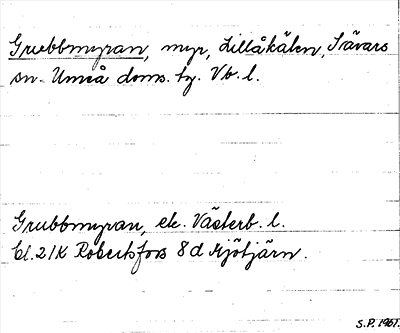 Grubbmyran, myr, Lillåkälen, Sävars
sn. Umeå doms. tg. Vb. l.
Grubbmyran, ek. Västerb. l.
bl. 21K Robertsfors 8d Mjötjärn.
S.P. 1967.